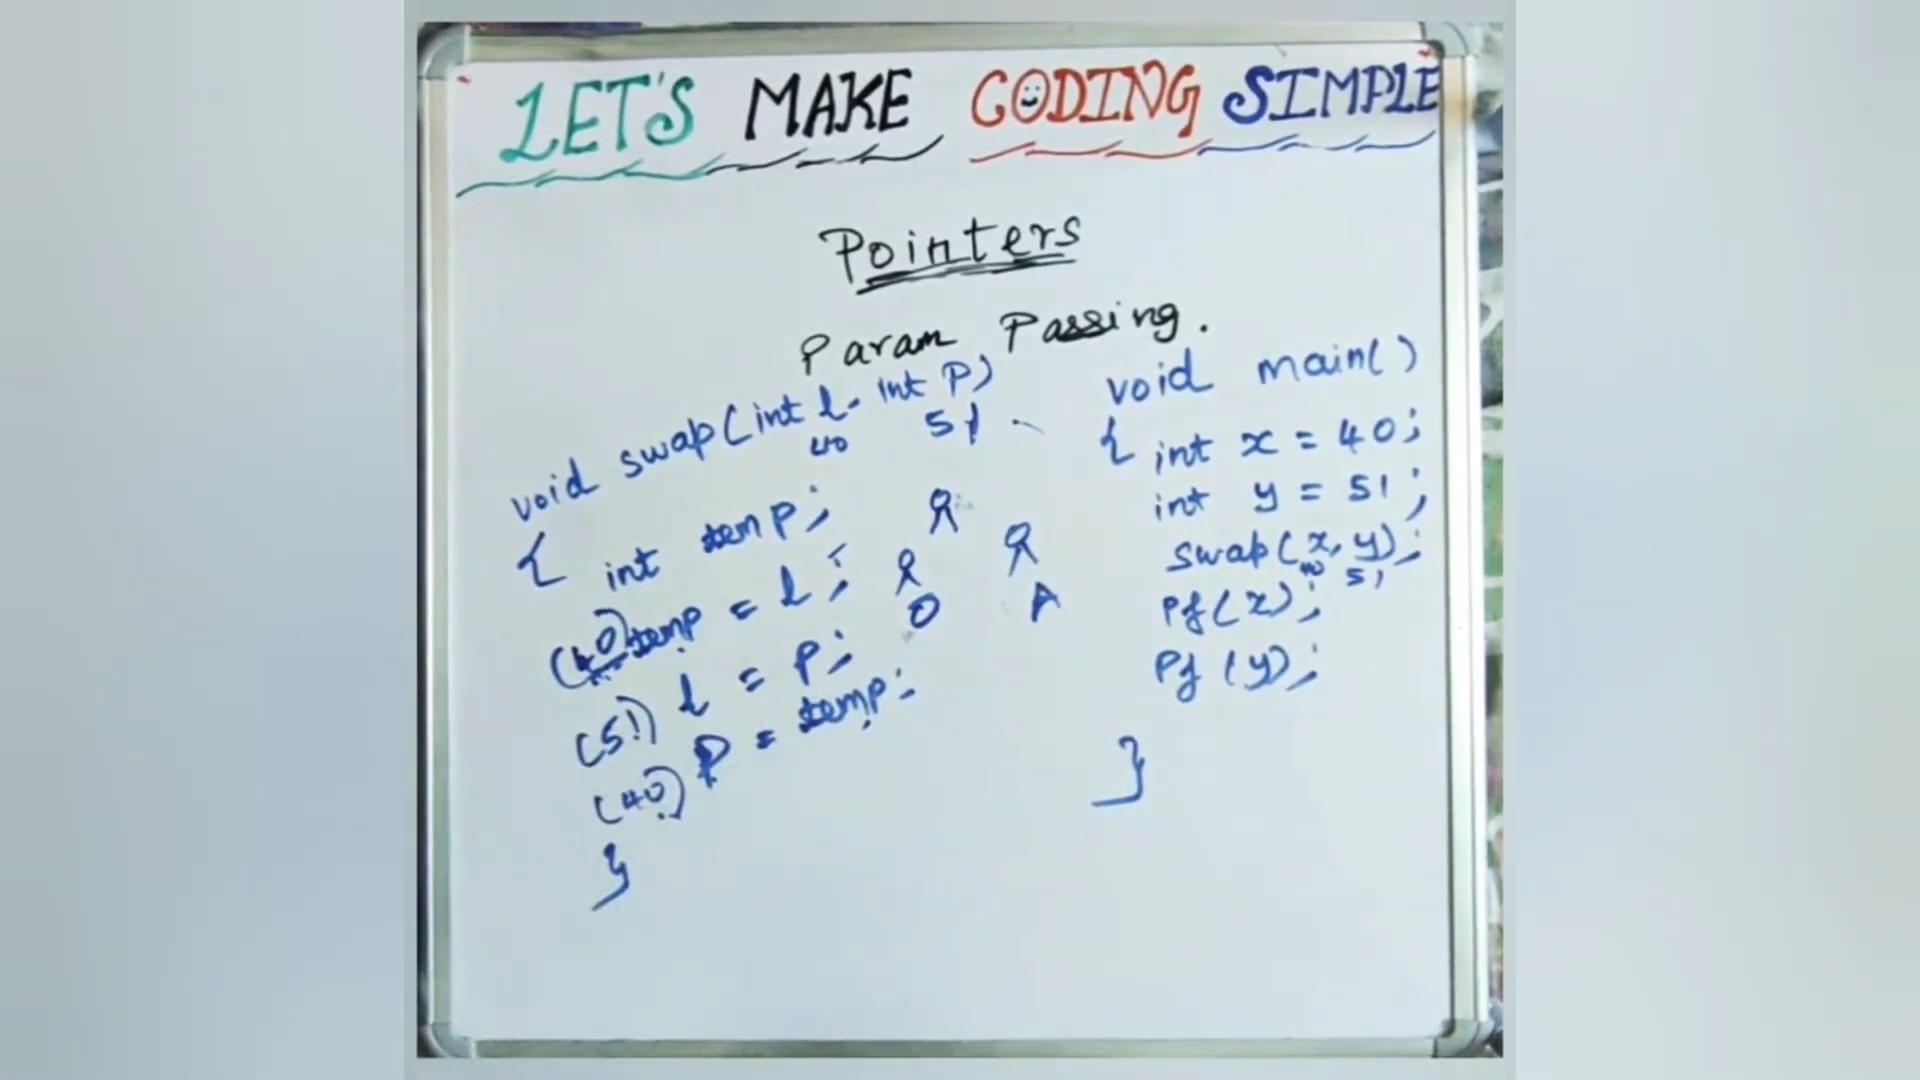 LET'S MAKE CODING SIMPLE
Pointers
Param Passing.
void swap(int l, int P)
40 51
{ int temp;
(40) temp = l;
(51) l = P;
(40) P = temp;
}
O A
void main()
{ int x = 40;
int y = 51;
swap(x, y);
40 51
Pf(x);
Pf(y);
}